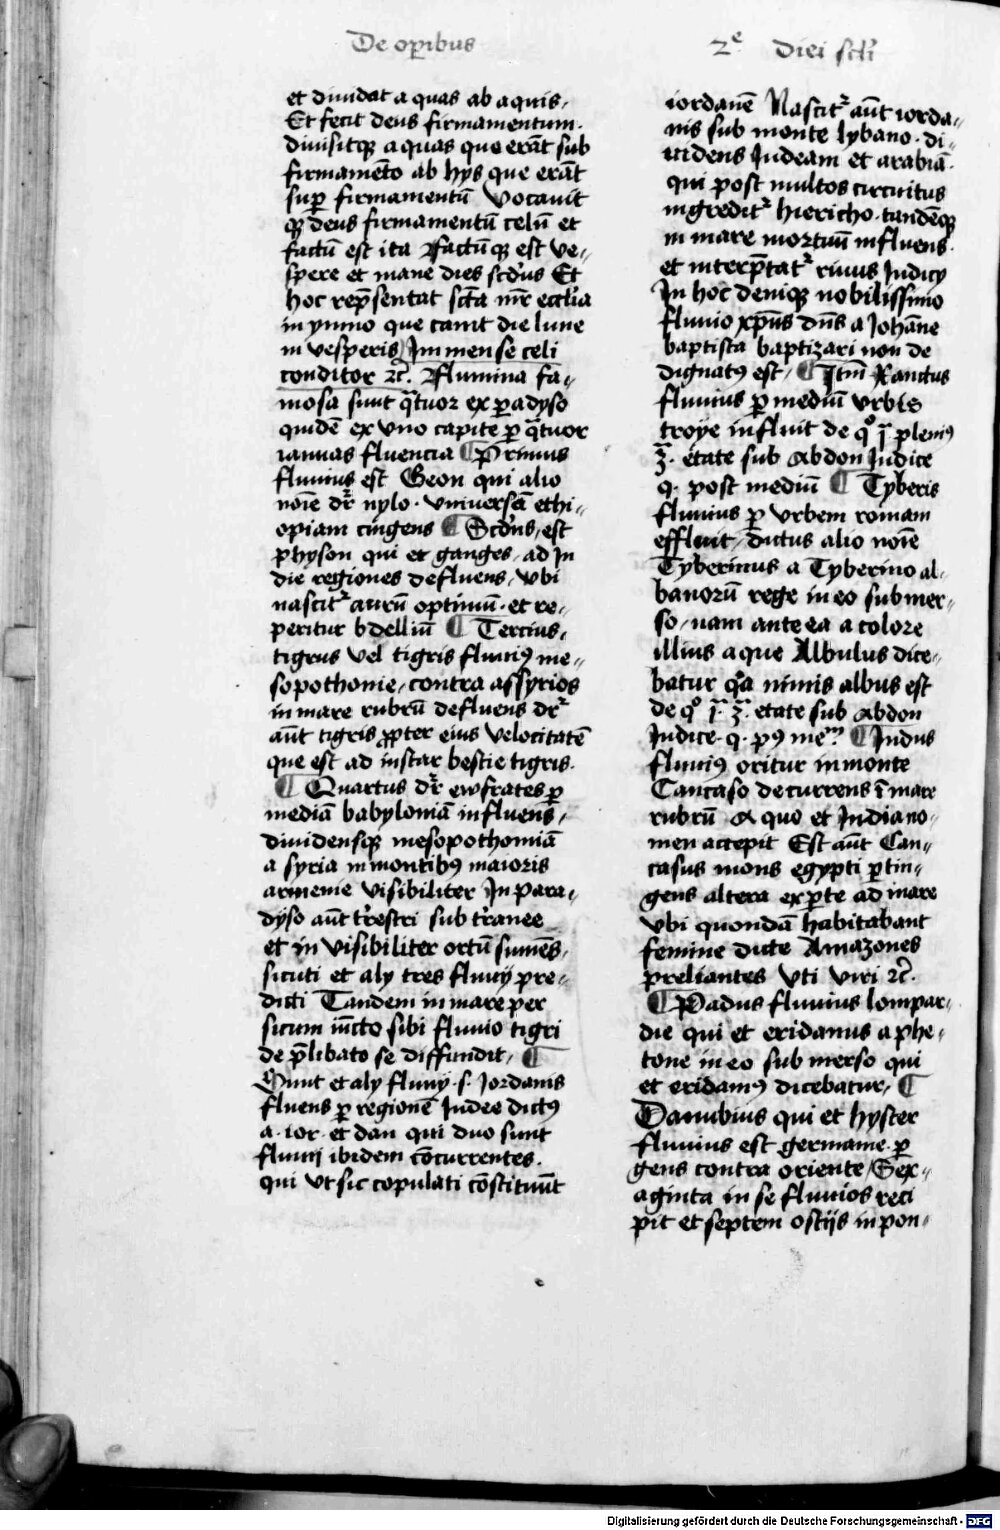 De op̱ibus
2ᵉ diei scl̓i
et diuidat aquas ab aquis,
Et fecit deus firmamentum.
diuisitqꝫ aquas que erāt sub
firmamēto ab hys que erāt
sup̱ firmamentū Vocauit
qꝫ deus firmamentū celū et
factū est ita Factūqꝫ est ve,,
spere et mane dies scd̓us Et
hoc rep̄sentat sc̄ta mr̄ eccl̓ia
in ymno que canit die lune
in vesperis Immense celi
conditor ⁊c̄. Flumina fa,,
mosa sunt q̄tuor ex ꝑadyso
quidē ex vno capite ꝑ q̄tuor
ianuas fluencia ¶ Primus
fluuius est Geon qui alio
noīe dr̄ nylo. vniuersā ethi,,
opiam cingens ¶ Scd̓us, est
physon qui et ganges, ad in
die regiones defluens, vbi
nascitᷣ aurū optimū. et re,,
peritur bdelliū ¶ Tercius,
tigrus vel tigris fluuiꝰ me,,
sopothonie, contra assyrios
in mare rubrū defluens dr̄
aūt tigris ꝓpter eius velocitatē
que est ad instar bestie tigris.
¶ Quartus dr̄ ewfrates ꝑ
mediā babyloniā influens,
diuidensqꝫ mesopothomiā
a syria in montibꝰ maioris
armenie visibiliter In para,,
dyso aūt tr̓estri sub tr̓anee
et in visibiliter ortū sumēs,
sicuti et aly tres fluuij pre,,
dicti Tandem in mare per
sicum iūcto sibi fluuio tigri
de p̄libato se diffundit, ¶
Sunt et aly fluuij .s. Jordanis
fluens ꝑ regionē Judee dictꝰ
a .ior. et dan qui duo sunt
fluuij ibidem cōcurrentes.
qui vt sic copulati cōstituūt
iordanē Nascitᷣ aūt iorda,,
nis sub monte lybano. di,,
uidens Judeam et arabiā.
qui post multos circuitus
ingreditᷣ hiericho. tandēqꝫ
in mare mortuū influens.
et interp̄tatᷣ riuus Judicy
In hoc deniqꝫ nobilissimo
fluuio xp̄us dn̄s a Johāne
baptista baptizari non de
dignatꝰ est, ¶ Itm̄ Xanctus
fluuius ꝑ mediū vrbis
troye influit de qº ī pleniꝰ
3̄. etate sub Abdon Judice
q. post mediū ¶ Tyberis
fluuius ꝑ vrbem romam
effluit, dictus alio noīe
Tyberinus a Tyberino al,,
banorū rege in eo submer,,
so, nam ante ea a colore
illius aque Albulus dice,,
batur q̄a nimis albus est
de qº ī. 3̄. etate sub Abdon
Judice. q. pꝰ me.ᵐ ¶ Indus
fluuiꝰ oritur in monte
Caucaso decurrens ī mare
rubrū A quo et Indiano,,
men accepit Est aūt Cau,,
casus mons egypti ꝑtin,,
gens altera ex ꝑte ad mare
vbi quondā habitabant
femine dicte Amazones
preliantes vti viri ⁊c̄.
¶ Padus fluuius lompar,,
die qui et eridanus a phe,,
tone in eo submerso qui
et eridanꝰ dicebatur, ¶
Danubius qui et hyster
fluuius est germanie. ꝑ
gens contra oriente, Sex,,
aginta in se fluuios reci
pit et septem ostijs in pon,,
Digitalisierung gefördert durch die Deutsche Forschungsgemeinschaft - DFG